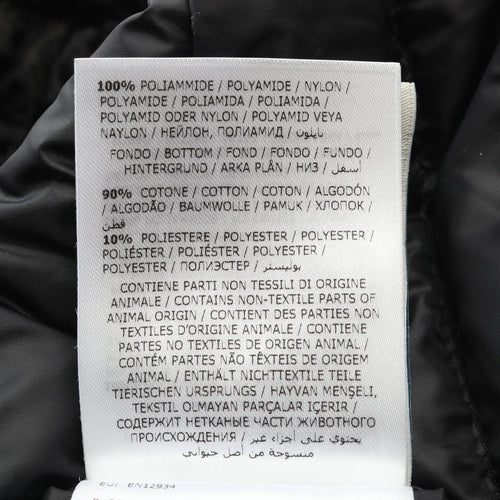 100% POLIAMMIDE / POLYAMIDE / NYLON /
POLYAMIDE / POLIAMIDA / POLIAMIDA /
POLYAMID ODER NYLON / POLYAMID VEYA
NAYLON / НЕЙЛОН, ПОЛИАМИД / نايلون
FONDO / BOTTOM / FOND / FONDO / FUNDO /
HINTERGRUND / ARKA PLÂN / НИЗ / أسفل
90% COTONE / COTTON / COTON / ALGODÓN
/ ALGODÃO / BAUMWOLLE / PAMUK / ХЛОПОК /
قطن
10% POLIESTERE / POLYESTER / POLYESTER /
POLIÉSTER / POLIÉSTER / POLYESTER /
POLYESTER / ПОЛИЭСТЕР / بوليستر
CONTIENE PARTI NON TESSILI DI ORIGINE
ANIMALE / CONTAINS NON-TEXTILE PARTS OF
ANIMAL ORIGIN / CONTIENT DES PARTIES NON
TEXTILES D'ORIGINE ANIMALE / CONTIENE
PARTES NO TEXTILES DE ORIGEN ANIMAL /
CONTÉM PARTES NÃO TÊXTEIS DE ORIGEM
ANIMAL / ENTHÄLT NICHTTEXTILE TEILE
TIERISCHEN URSPRUNGS / HAYVAN MENŞELİ,
TEKSTIL OLMAYAN PARÇALAR IÇERIR /
СОДЕРЖИТ НЕТКАНЫЕ ЧАСТИ ЖИВОТНОГО
ПРОИСХОЖДЕНИЯ / يحتوي على أجزاء غير
منسوجة من أصل حيواني
EN12934